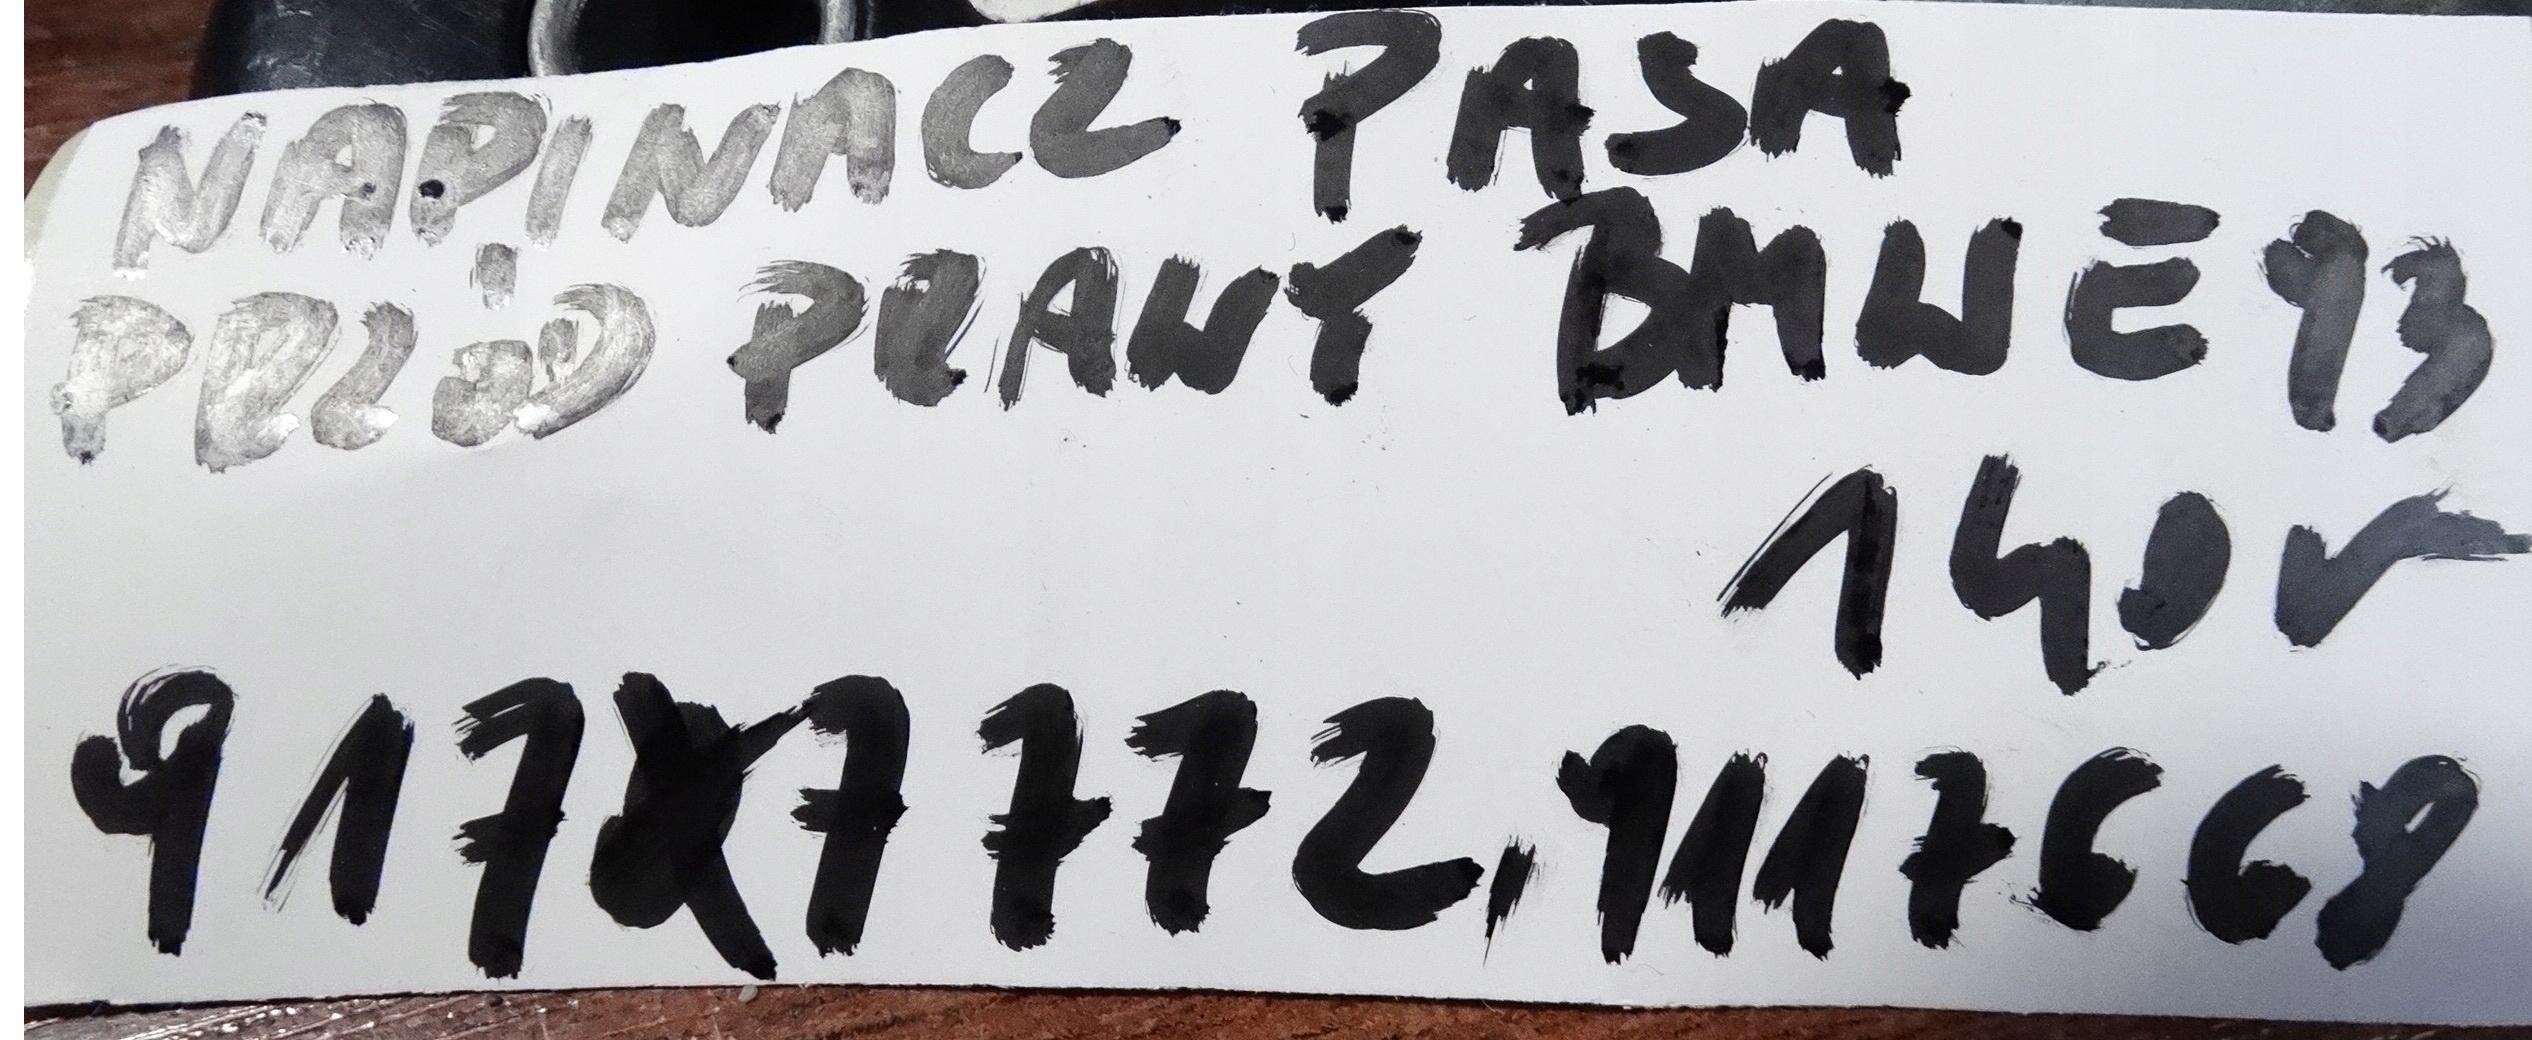 NAPINACZ PASA
PRZÓD PRAWY BMW E93
140 r
9177772, 9117668